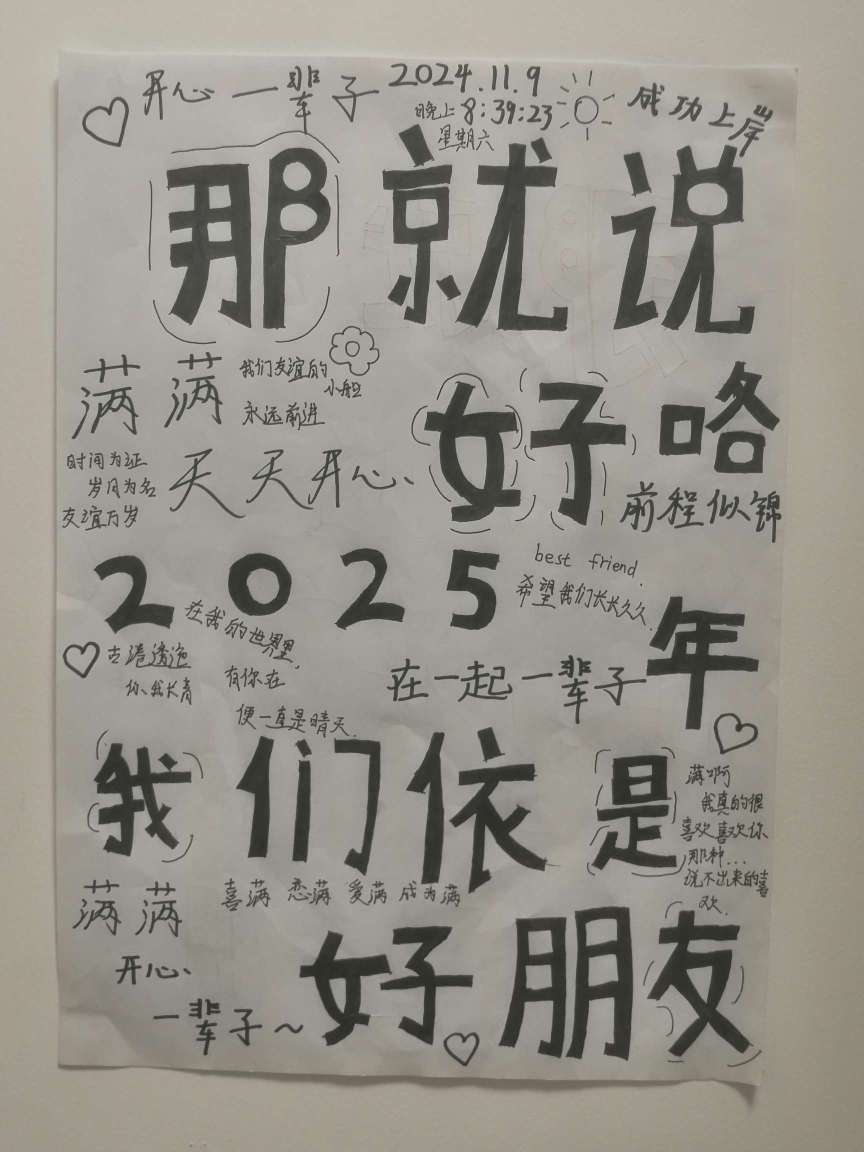 开心一辈子
2024.11.9
晚上8:39:23
星期六
成功上岸
那就说
满满
我们友谊的
小船
永远前进
好咯
时间为证
岁月为名
友谊万岁
天天开心、
前程似锦
2025
best friend.
希望我们长长久久.
年
在我的世界里,
有你在
便一直是晴天.
你我长青
在一起一辈子
我们依是
满啊
我真的很
喜欢喜欢你
那种...
说不出来的喜
欢.
喜满 恋满 爱满 成为满
满满
开心、
一辈子~
好朋友